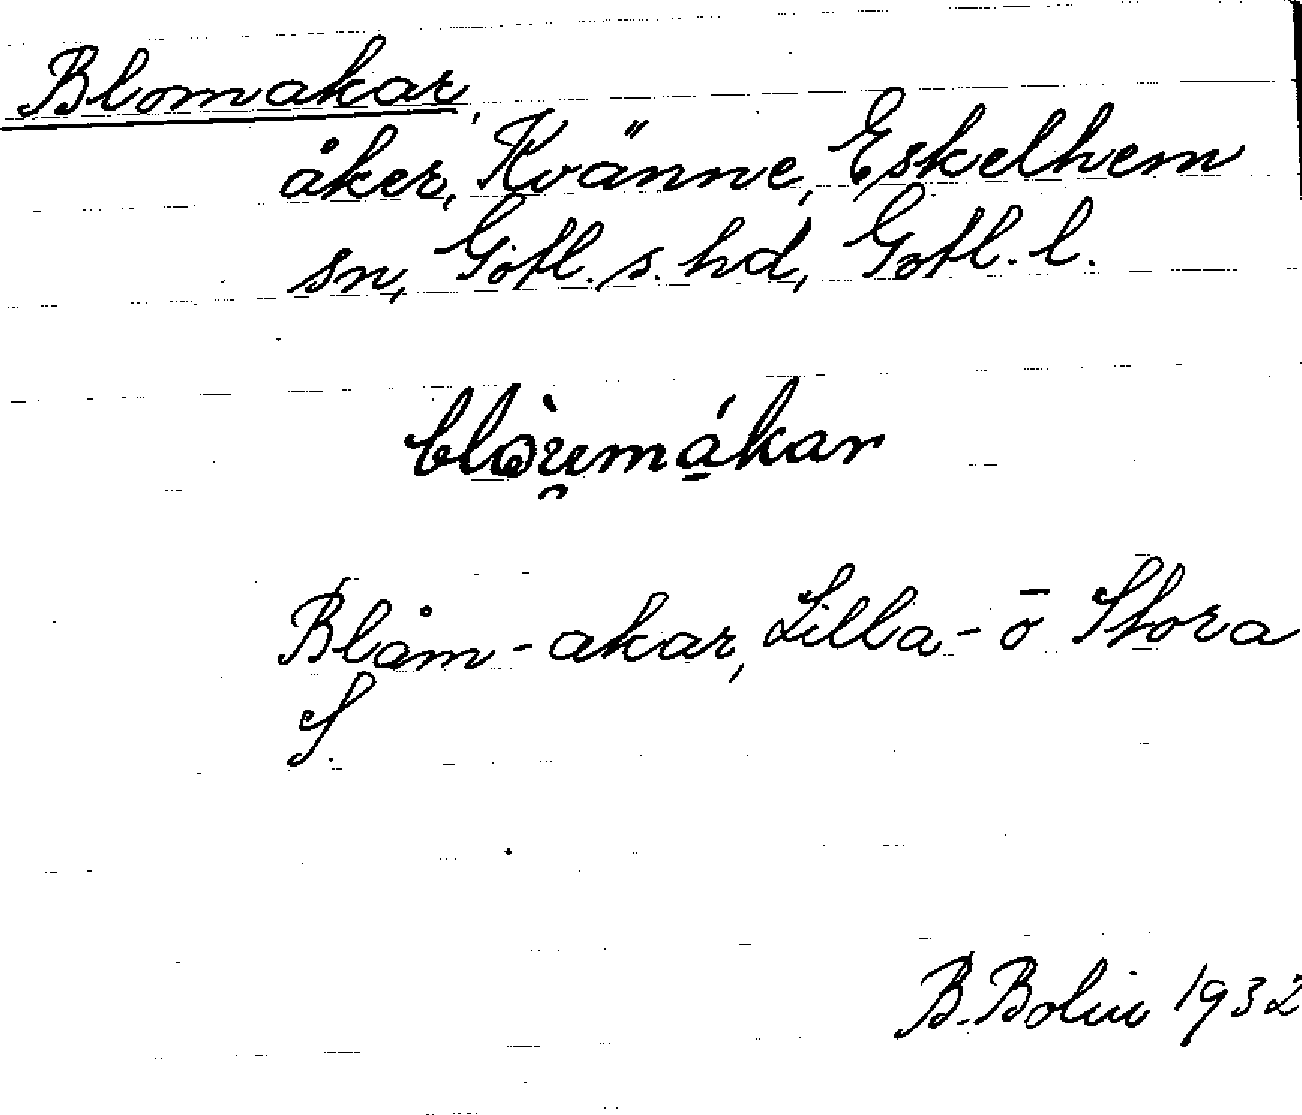 Blomakar,
åker, Kvänne, Eskelhem
sn, Gotl. s. hd, Gotl. l.
Blåm-akar, Lilla- o Stora
S.
B. Bolin 1932